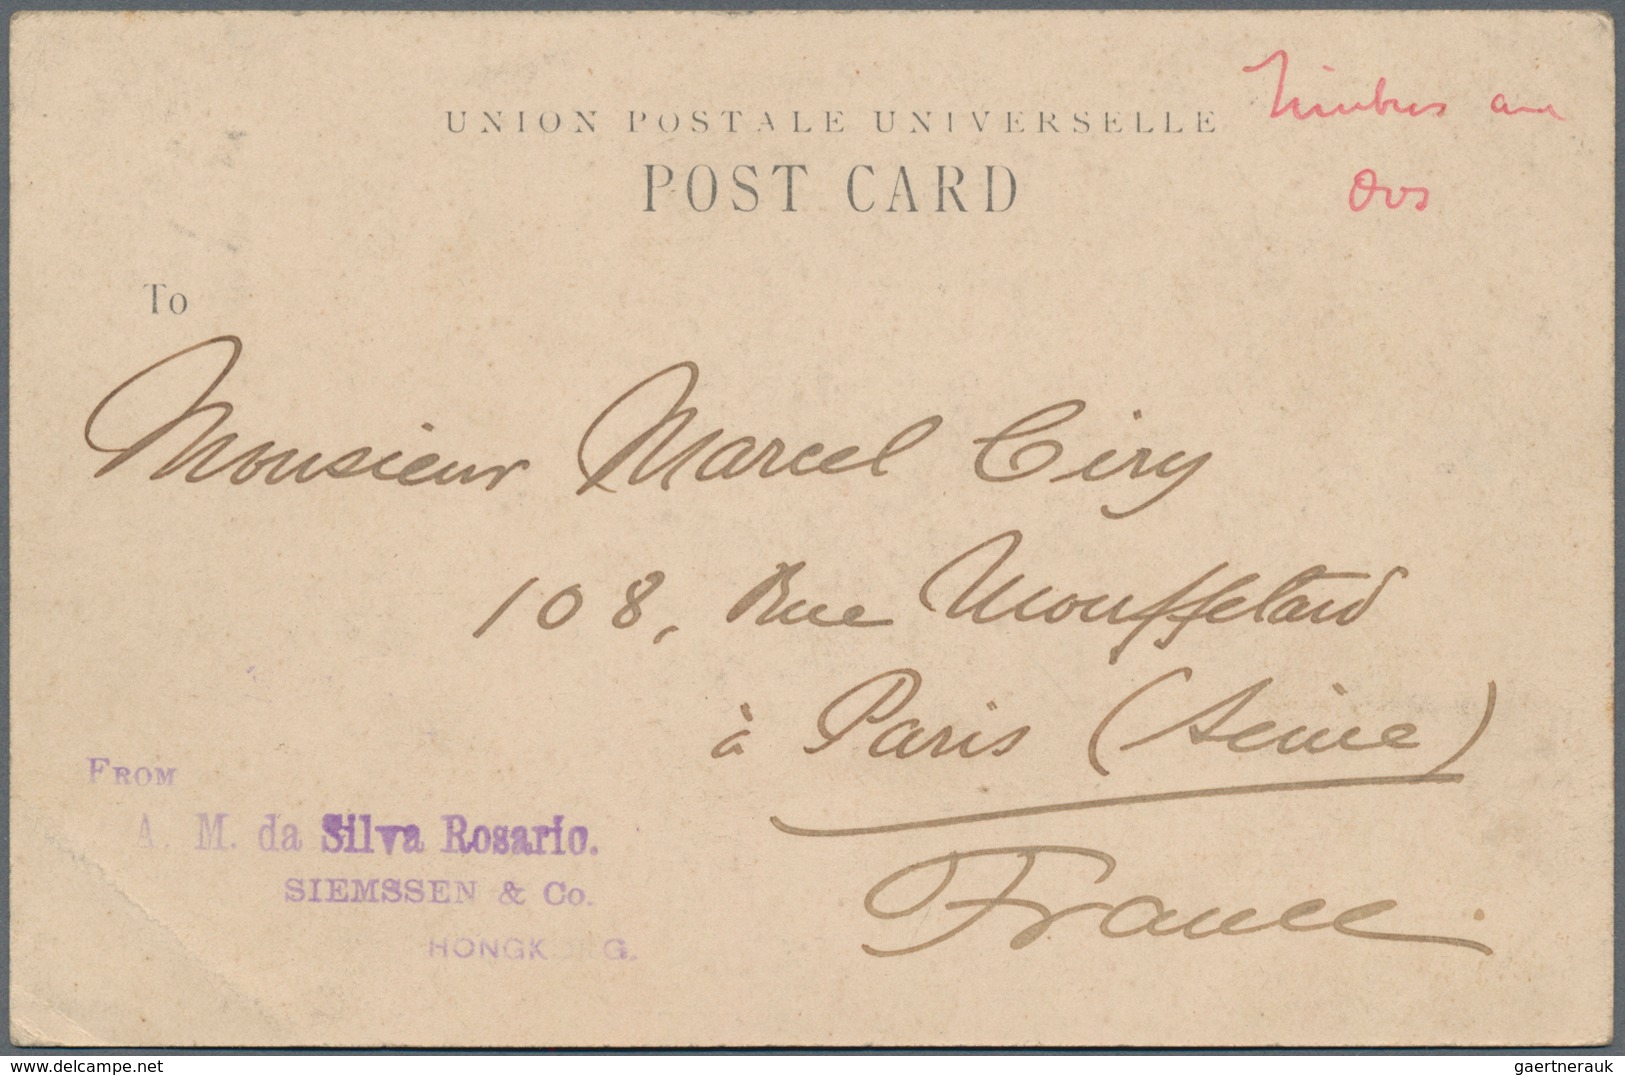 UNION POSTALE UNIVERSELLE
POST CARD
Timbres au
dos
To
Monsieur Marcel Ciry
108, Rue Mouffetard
à Paris (Seine)
France.
FROM
A. M. da Silva Rosario.
SIEMSSEN & Co.
HONGKONG.
gaertnerauk @ delcampe.net